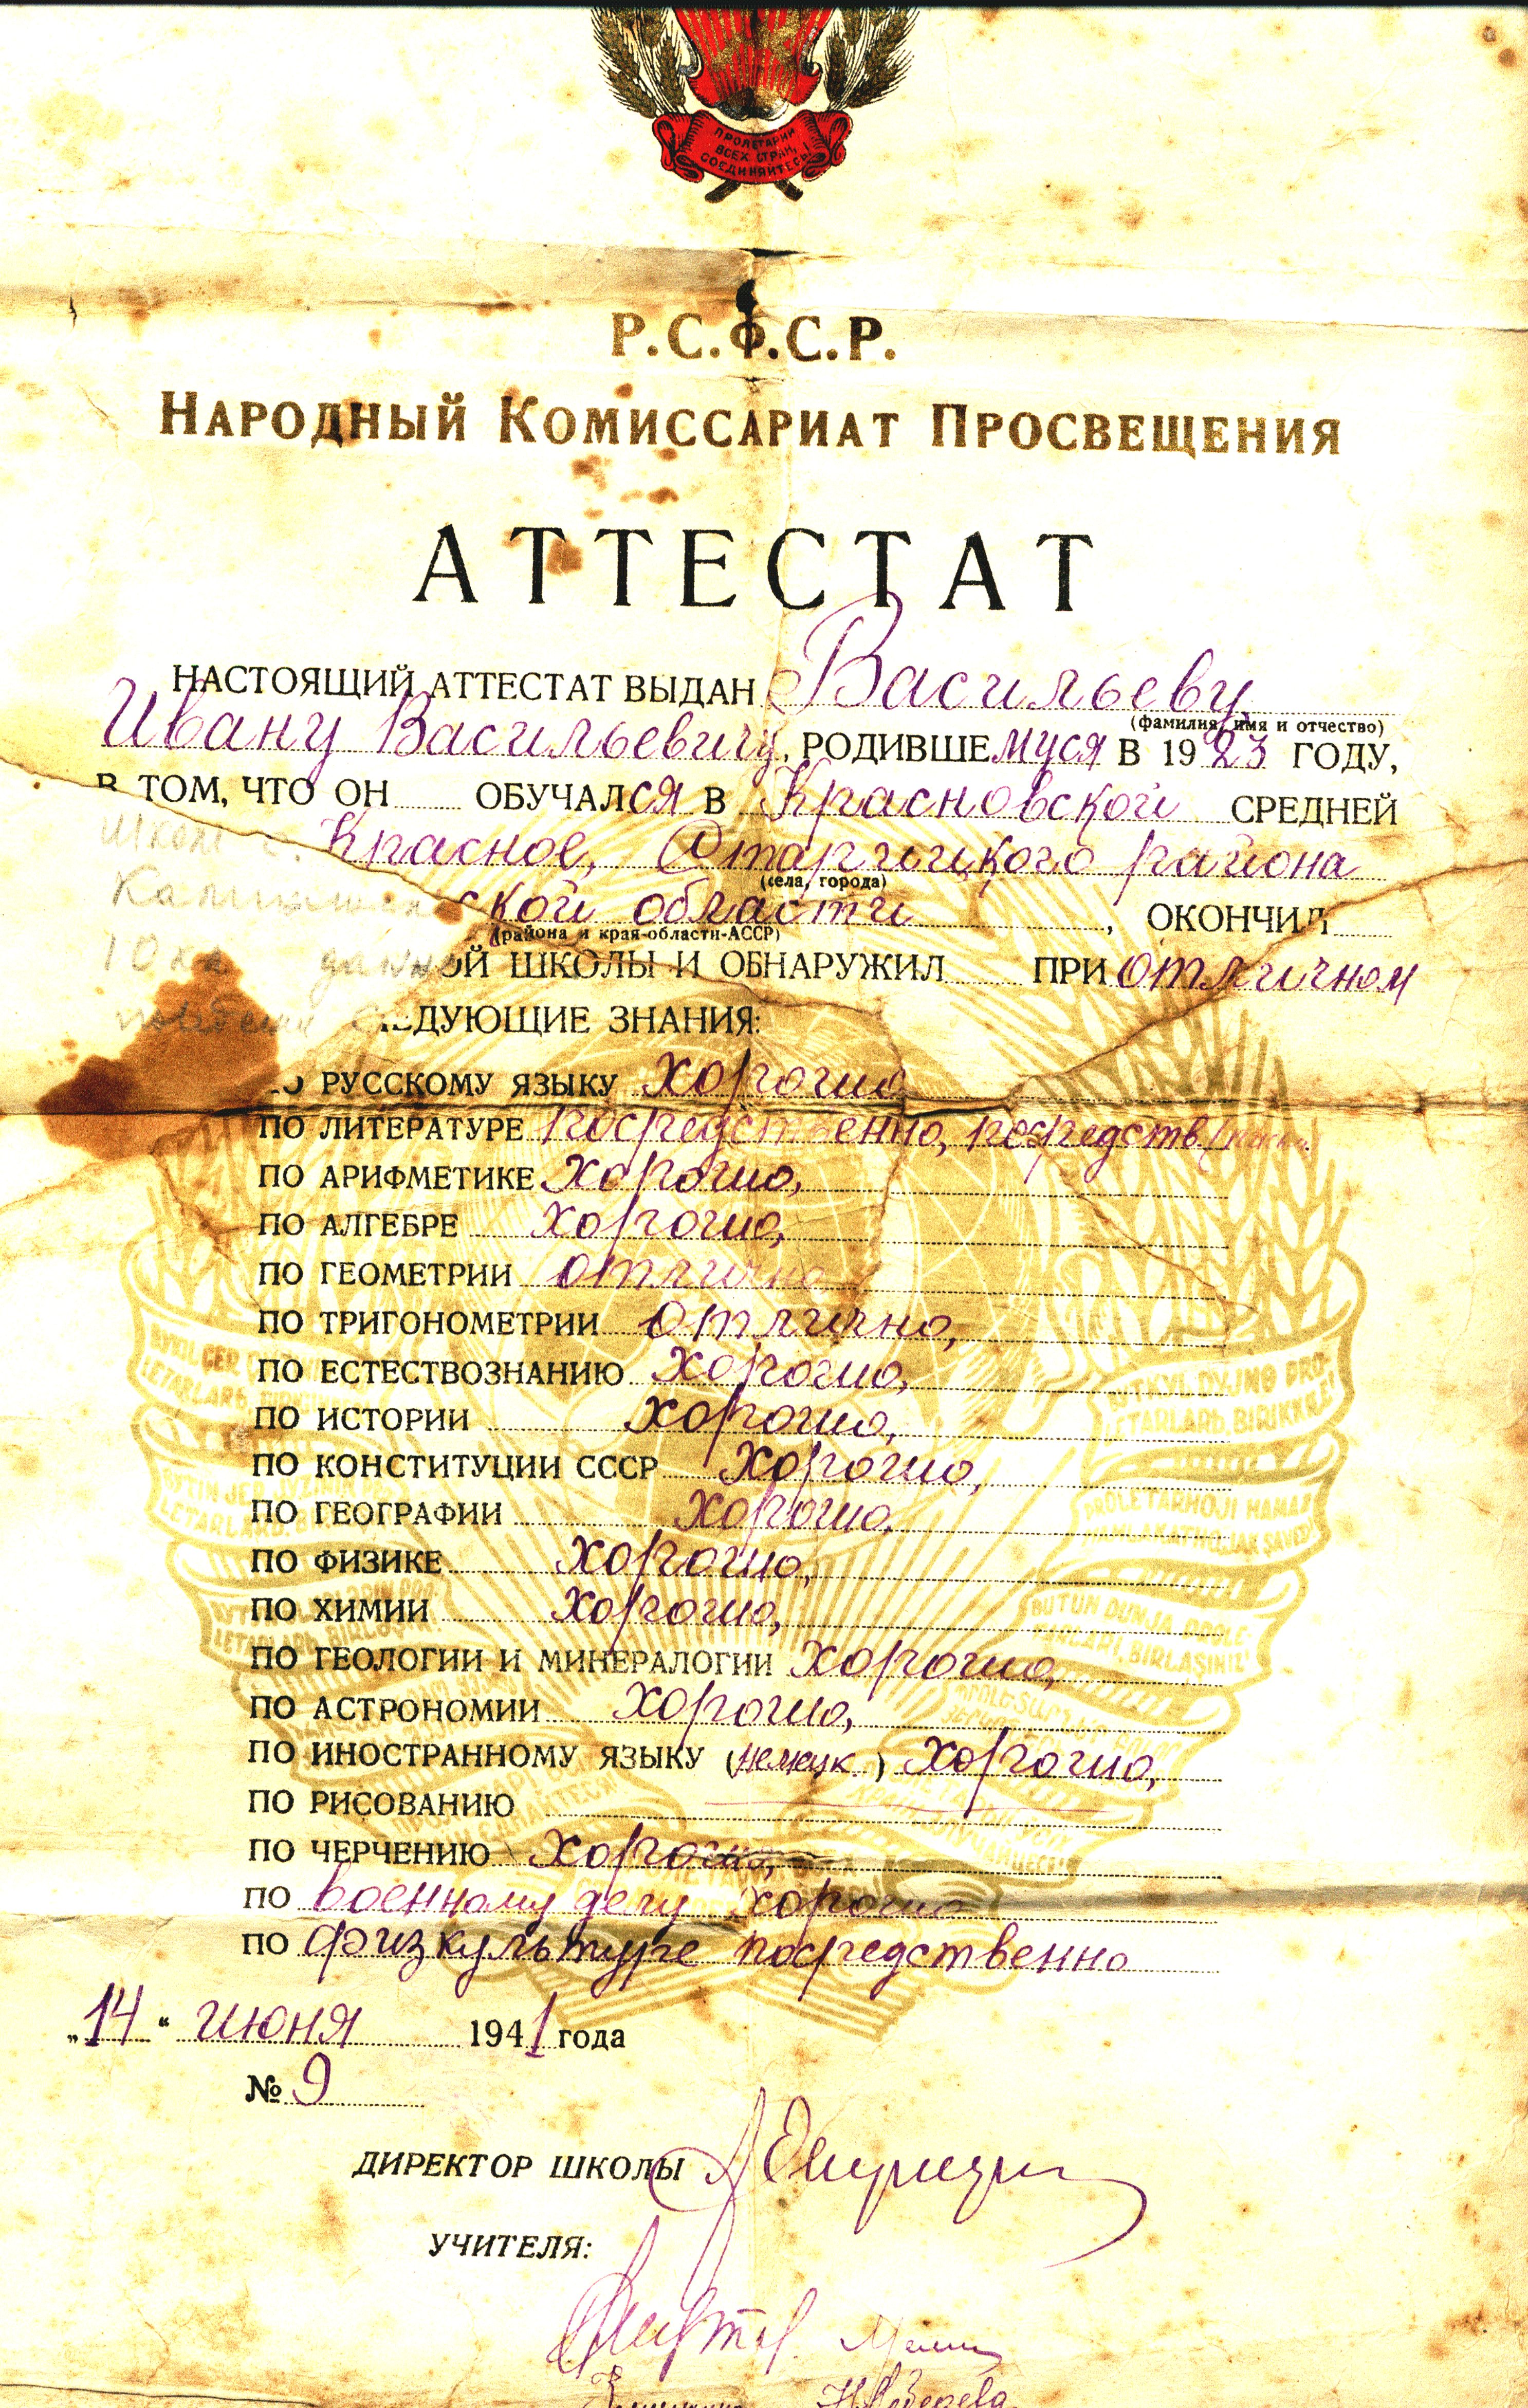 ПРОЛЕТАРИИ
ВСЕХ СТРАН,
СОЕДИНЯЙТЕСЬ!
Р.С.Ф.С.Р.
НАРОДНЫЙ КОМИССАРИАТ ПРОСВЕЩЕНИЯ
АТТЕСТАТ
НАСТОЯЩИЙ АТТЕСТАТ ВЫДАН Васильеву
(фамилия, имя и отчество)
Ивану Васильевичу, РОДИВШЕмуся В 1923 ГОДУ,
В ТОМ, ЧТО ОН ОБУЧАЛся В Красновской СРЕДНЕЙ
школе с. Красное, Старицкого района
(села, города)
ской области, ОКОНЧИЛ
(района и края-области-АССР)
10 кл данной ШКОЛЫ И ОБНАРУЖИЛ ПРИ отличном
поведении СЛЕДУЮЩИЕ ЗНАНИЯ:
ПО РУССКОМУ ЯЗЫКУ хорошо
ПО ЛИТЕРАТУРЕ посредственно, посредств.
ПО АРИФМЕТИКЕ хорошо,
ПО АЛГЕБРЕ хорошо,
ПО ГЕОМЕТРИИ отлично
ПО ТРИГОНОМЕТРИИ отлично,
ПО ЕСТЕСТВОЗНАНИЮ хорошо,
ПО ИСТОРИИ хорошо,
ПО КОНСТИТУЦИИ СССР хорошо,
ПО ГЕОГРАФИИ хорошо,
ПО ФИЗИКЕ хорошо,
ПО ХИМИИ хорошо,
ПО ГЕОЛОГИИ И МИНЕРАЛОГИИ хорошо,
ПО АСТРОНОМИИ хорошо,
ПО ИНОСТРАННОМУ ЯЗЫКУ (немецк.) хорошо,
ПО РИСОВАНИЮ
ПО ЧЕРЧЕНИЮ хорошо,
ПО военному делу хорошо
ПО физкультуре посредственно
„14“ июня 1941 года
№ 9
ДИРЕКТОР ШКОЛЫ
УЧИТЕЛЯ: